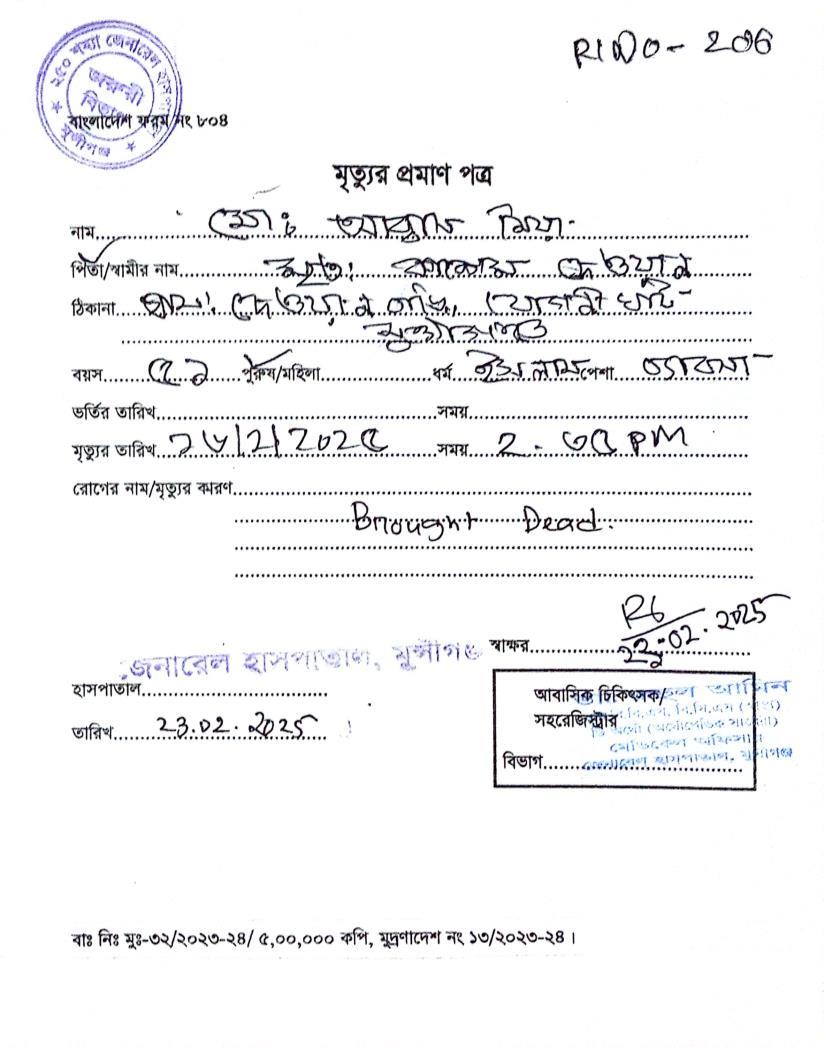 RIN0 - 206
২৫০ শয্যা জেনারেল হাসপাতাল
জরুরী
বিভাগ
মুন্সীগঞ্জ
বাংলাদেশ ফরম নং ৮০৪
মৃত্যুর প্রমাণ পত্র
নাম..... মোঃ মিয়া
পিতা/স্বামীর নাম..... মৃতঃ দেওয়ান
ঠিকানা.....
মুন্সীগঞ্জ
বয়স..... ৫২ পুরুষ/মহিলা..... ধর্ম..... ইসলাম পেশা.....
ভর্তির তারিখ..... সময়.....
মৃত্যুর তারিখ..... সময়..... 2 - ৩৫ PM
রোগের নাম/মৃত্যুর কারণ.....
Brought Dead.
22.02.2025
স্বাক্ষর.....
জেনারেল হাসপাতাল, মুন্সীগঞ্জ
হাসপাতাল.....
তারিখ..... 23.02.2025
আবাসিক চিকিৎসক/
সহরেজিস্ট্রার
মেডিকেল অফিসার
বিভাগ..... জেনারেল হাসপাতাল, মুন্সীগঞ্জ
বাঃ নিঃ মুঃ-৩২/২০২৩-২৪/ ৫,০০,০০০ কপি, মুদ্রণাদেশ নং ১৩/২০২৩-২৪।